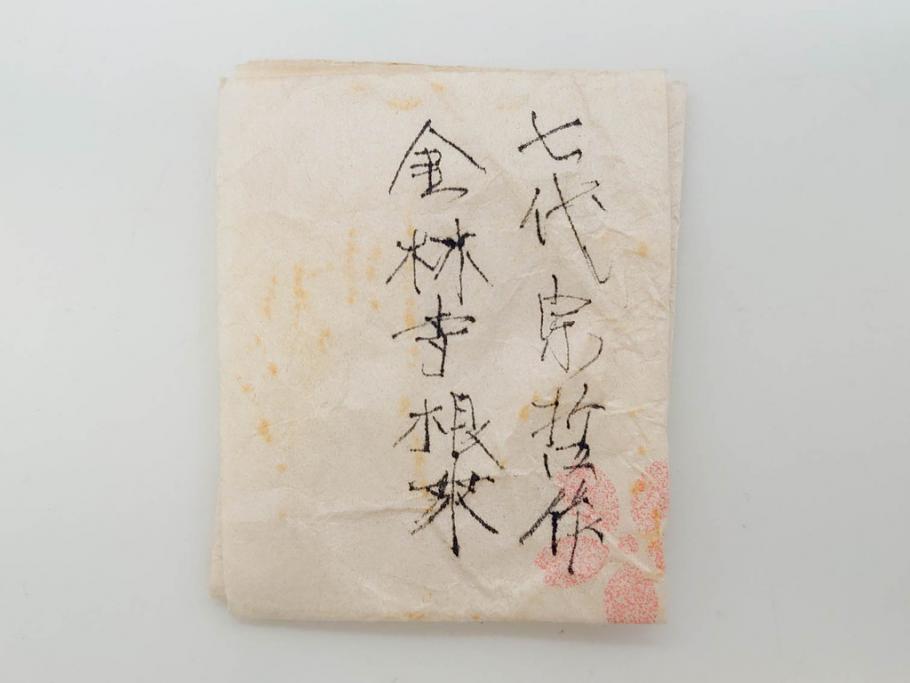 七代宗哲作
金林寺根来